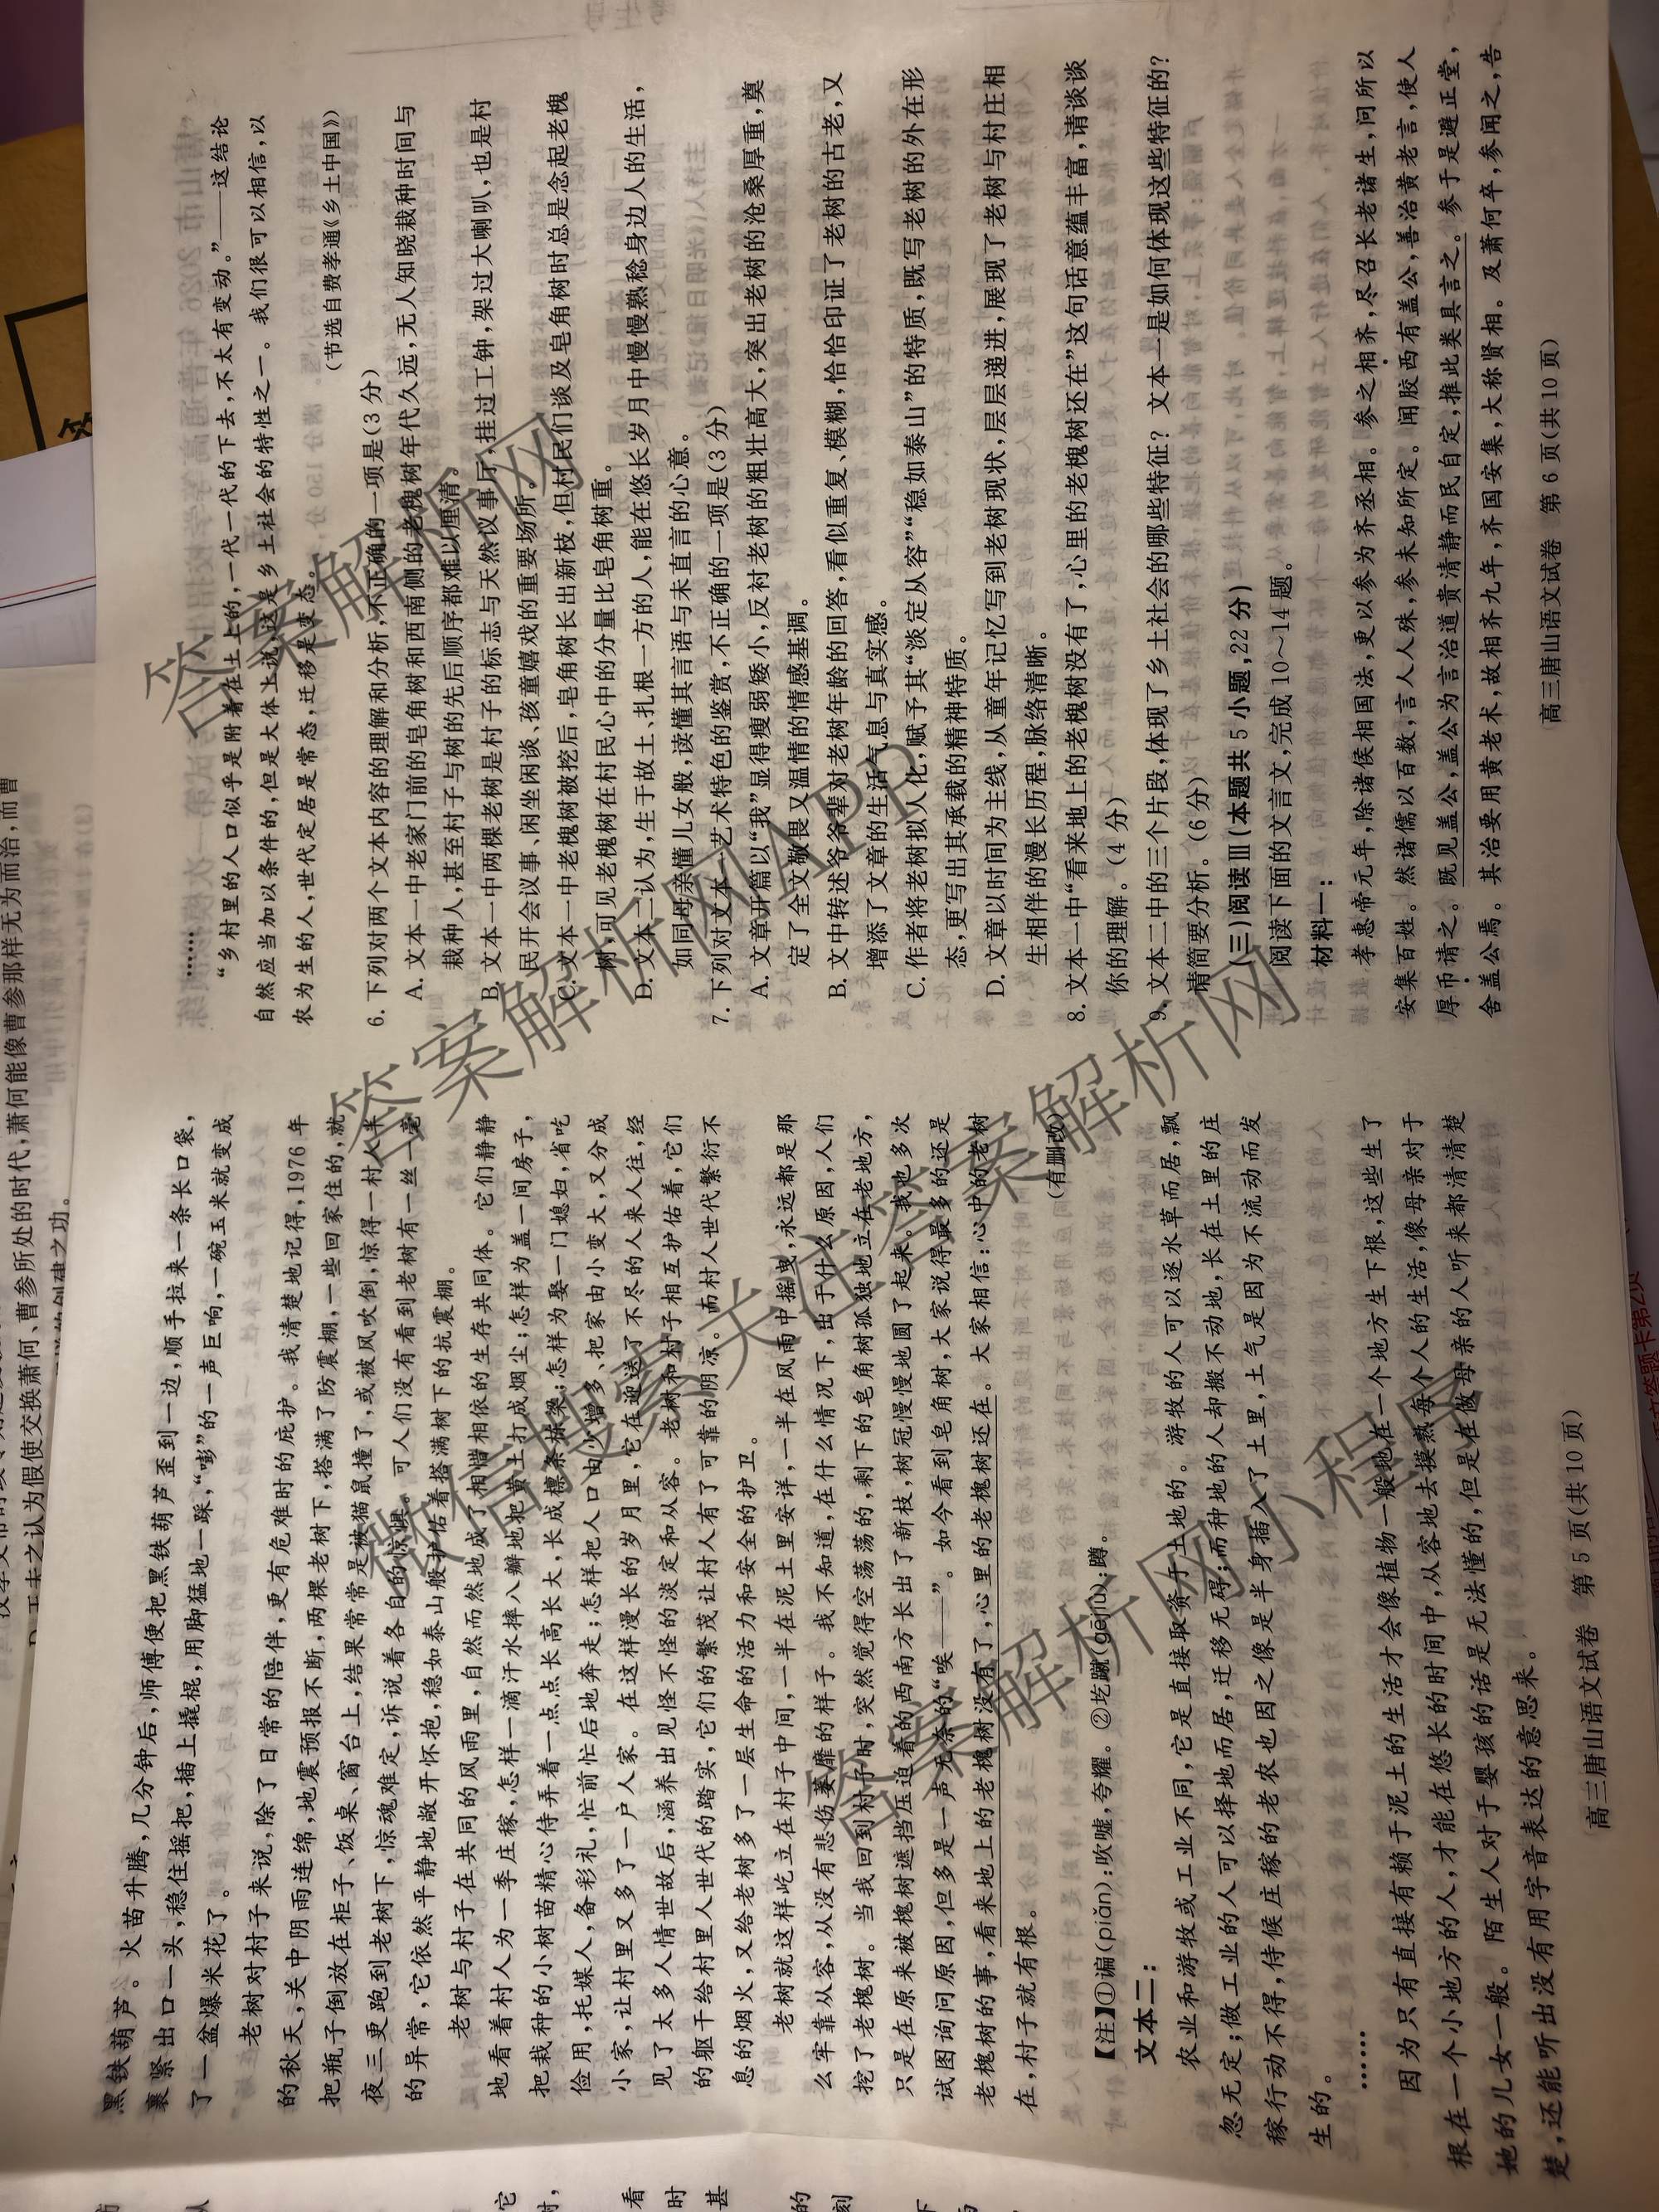 黑铁葫芦。火苗升腾,几分钟后,师傅便把黑铁葫芦歪到一边,顺手拉来一条长口袋,
裹紧出口一头,稳住摇把,插上撬棍,用脚猛地一踩,“嘭”的一声巨响,一碗玉米就变成
了一盆爆米花了。
老树对村子来说,除了日常的陪伴,更有危难时的庇护。我清楚地记得,1976年
的秋天,关中阴雨连绵,地震预报不断,两棵老树下,搭满了防震棚,一些回家住的,就
把瓶子倒放在柜子、饭桌、窗台上,结果常常是被猫鼠撞了,或被风吹倒,惊得一村人半
夜三更跑到老树下,惊魂难定,诉说着各自的惊惧。可人们没有看到老树有一丝一毫
的异常,它依然平静地敞开怀抱,稳如泰山般护佑着搭满树下的抗震棚。
老树与村子在共同的风雨里,自然而然地成了相谐相依的生存共同体。它们静静
地看着村人为一季庄稼,怎样一滴汗水摔八瓣地把黄土打成烟尘;怎样为盖一间房子,
把栽种的小树苗精心侍弄着一点点长高长大,长成檩条栋梁;怎样为娶一门媳妇,省吃
俭用,托媒人,备彩礼,忙前忙后地奔走;怎样把人口由少增多、把家由小变大,又分成
小家,让村里又多了一户人家。在这样漫长的岁月里,它在迎送了不尽的人来人往,经
见了太多人情世故后,涵养出见怪不怪的淡定和从容。老树和村子相互护佑着,它们
的躯干给村里人世代的踏实,它们的繁茂让村人有了可靠的阴凉。而村人世代繁衍不
息的烟火,又给老树多了一层生命的活力和安全的护卫。
老树就这样屹立在村子中间,一半在泥土里安详,一半在风雨中摇曳,永远都是那
么牢靠从容,从没有悲伤萎靡的样子。我不知道,在什么情况下,出于什么原因,人们
挖了老槐树。当我回到村子时,突然觉得空荡荡的,剩下的皂角树孤独地立在老地方,
只是在原来被槐树遮挡压迫着的西南方长出了新枝,树冠慢慢地圆了起来。我也多次
试图询问原因,但多是一声无奈的“唉——”。如今看到皂角树,大家说得最多的还是
老槐树的事,看来地上的老槐树没有了,心里的老槐树还在。大家相信:心中的老树
在,村子就有根。
(有删改)
【注】①谝(piǎn):吹嘘,夸耀。②圪蹴(gējiu):蹲。
文本二:
农业和游牧或工业不同,它是直接取资于土地的。游牧的人可以逐水草而居,飘
忽无定;做工业的人可以择地而居,迁移无碍;而种地的人却搬不动地,长在土里的庄
稼行动不得,侍候庄稼的老农也因之像是半身插入了土里,土气是因为不流动而发
生的。
……
因为只有直接有赖于泥土的生活才会像植物一般地在一个地方生下根,这些生了
根在一个小地方的人,才能在悠长的时间中,从容地去摸熟每个人的生活,像母亲对于
她的儿女一般。陌生人对于婴孩的话是无法懂的,但是在做母亲的人听来都清清楚
楚,还能听出没有用字音表达的意思来。
高三唐山语文试卷 第5页(共10页)
……
“乡村里的人口似乎是附着在土上的,一代一代的下去,不太有变动。”——这结论
自然应当加以条件的,但是大体上说,这是乡土社会的特性之一。我们很可以相信,以
农为生的人,世代定居是常态,迁移是变态。
(节选自费孝通《乡土中国》)
6. 下列对两个文本内容的理解和分析,不正确的一项是(3分)
A. 文本一中老家门前的皂角树和西南侧的老槐树年代久远,无人知晓栽种时间与
栽种人,甚至村子与树的先后顺序都难以厘清。
B. 文本一中两棵老树是村子的标志与天然议事厅,挂过工钟,架过大喇叭,也是村
民开会议事、闲坐闲谈、孩童嬉戏的重要场所。
C. 文本一中老槐树被挖后,皂角树长出新枝,但村民们谈及皂角树时总是念起老槐
树,可见老槐树在村民心中的分量比皂角树重。
D. 文本二认为,生于故土、扎根一方的人,能在悠长岁月中慢慢熟稔身边人的生活,
如同母亲懂儿女般,读懂其言语与未直言的心意。
7. 下列对文本一艺术特色的鉴赏,不正确的一项是(3分)
A. 文章开篇以“我”显得瘦弱矮小,反衬老树的粗壮高大,突出老树的沧桑厚重,奠
定了全文敬畏又温情的情感基调。
B. 文中转述爷爷辈对老树年龄的回答,看似重复、模糊,恰恰印证了老树的古老,又
增添了文章的生活气息与真实感。
C. 作者将老树拟人化,赋予其“淡定从容”“稳如泰山”的特质,既写老树的外在形
态,更写出其承载的精神特质。
D. 文章以时间为主线,从童年记忆写到老树现状,层层递进,展现了老树与村庄相
生相伴的漫长历程,脉络清晰。
8. 文本一中“看来地上的老槐树没有了,心里的老槐树还在”这句话意蕴丰富,请谈谈
你的理解。(4分)
9. 文本二中的三个片段,体现了乡土社会的哪些特征?文本一是如何体现这些特征的?
请简要分析。(6分)
(三)阅读Ⅲ(本题共5小题,22分)
阅读下面的文言文,完成10~14题。
材料一:
孝惠帝元年,除诸侯相国法,更以参为齐丞相。参之相齐,尽召长老诸生,问所以
安集百姓。然诸儒以百数,言人人殊,参未知所定。闻胶西有盖公,善治黄老言,使人
厚币请之。既见盖公,盖公为言治道贵清静而民自定,推此类具言之。参于是避正堂,
舍盖公焉。其治要用黄老术,故相齐九年,齐国安集,大称贤相。及萧何卒,参闻之,告
高三唐山语文试卷 第6页(共10页)
答案解析网
微信搜索 关注答案解析网
答案解析网APP
答案解析网小程序